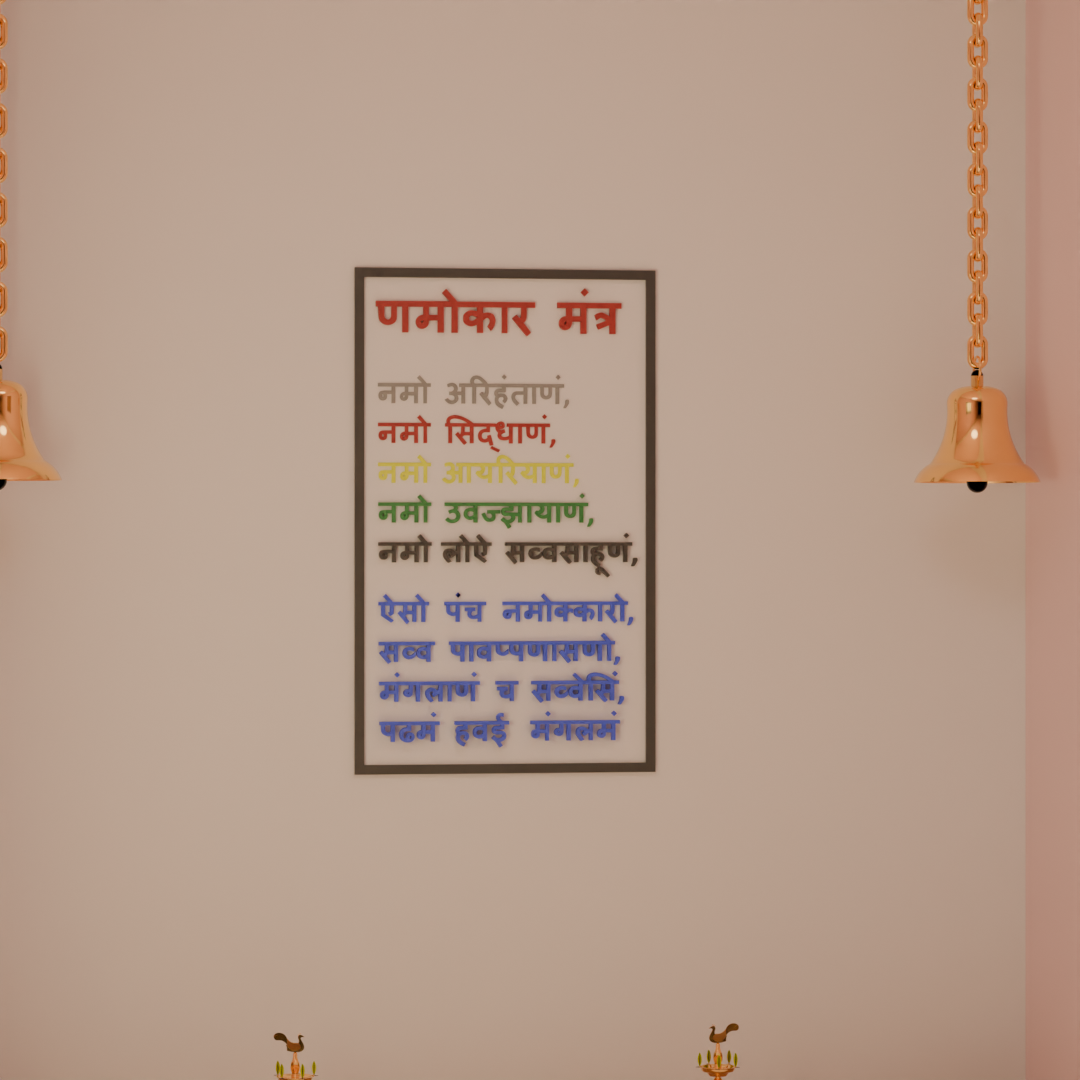 णमोकार मंत्र
नमो अरिहंताणं,
नमो सिद्धाणं,
नमो आयरियाणं,
नमो उवज्झायाणं,
नमो लोऐ सव्वसाहूणं,
ऐसो पंच नमोक्कारो,
सव्व पावप्पणासणो,
मंगलाणं च सव्वेसिं,
पढमं हवई मंगलमं